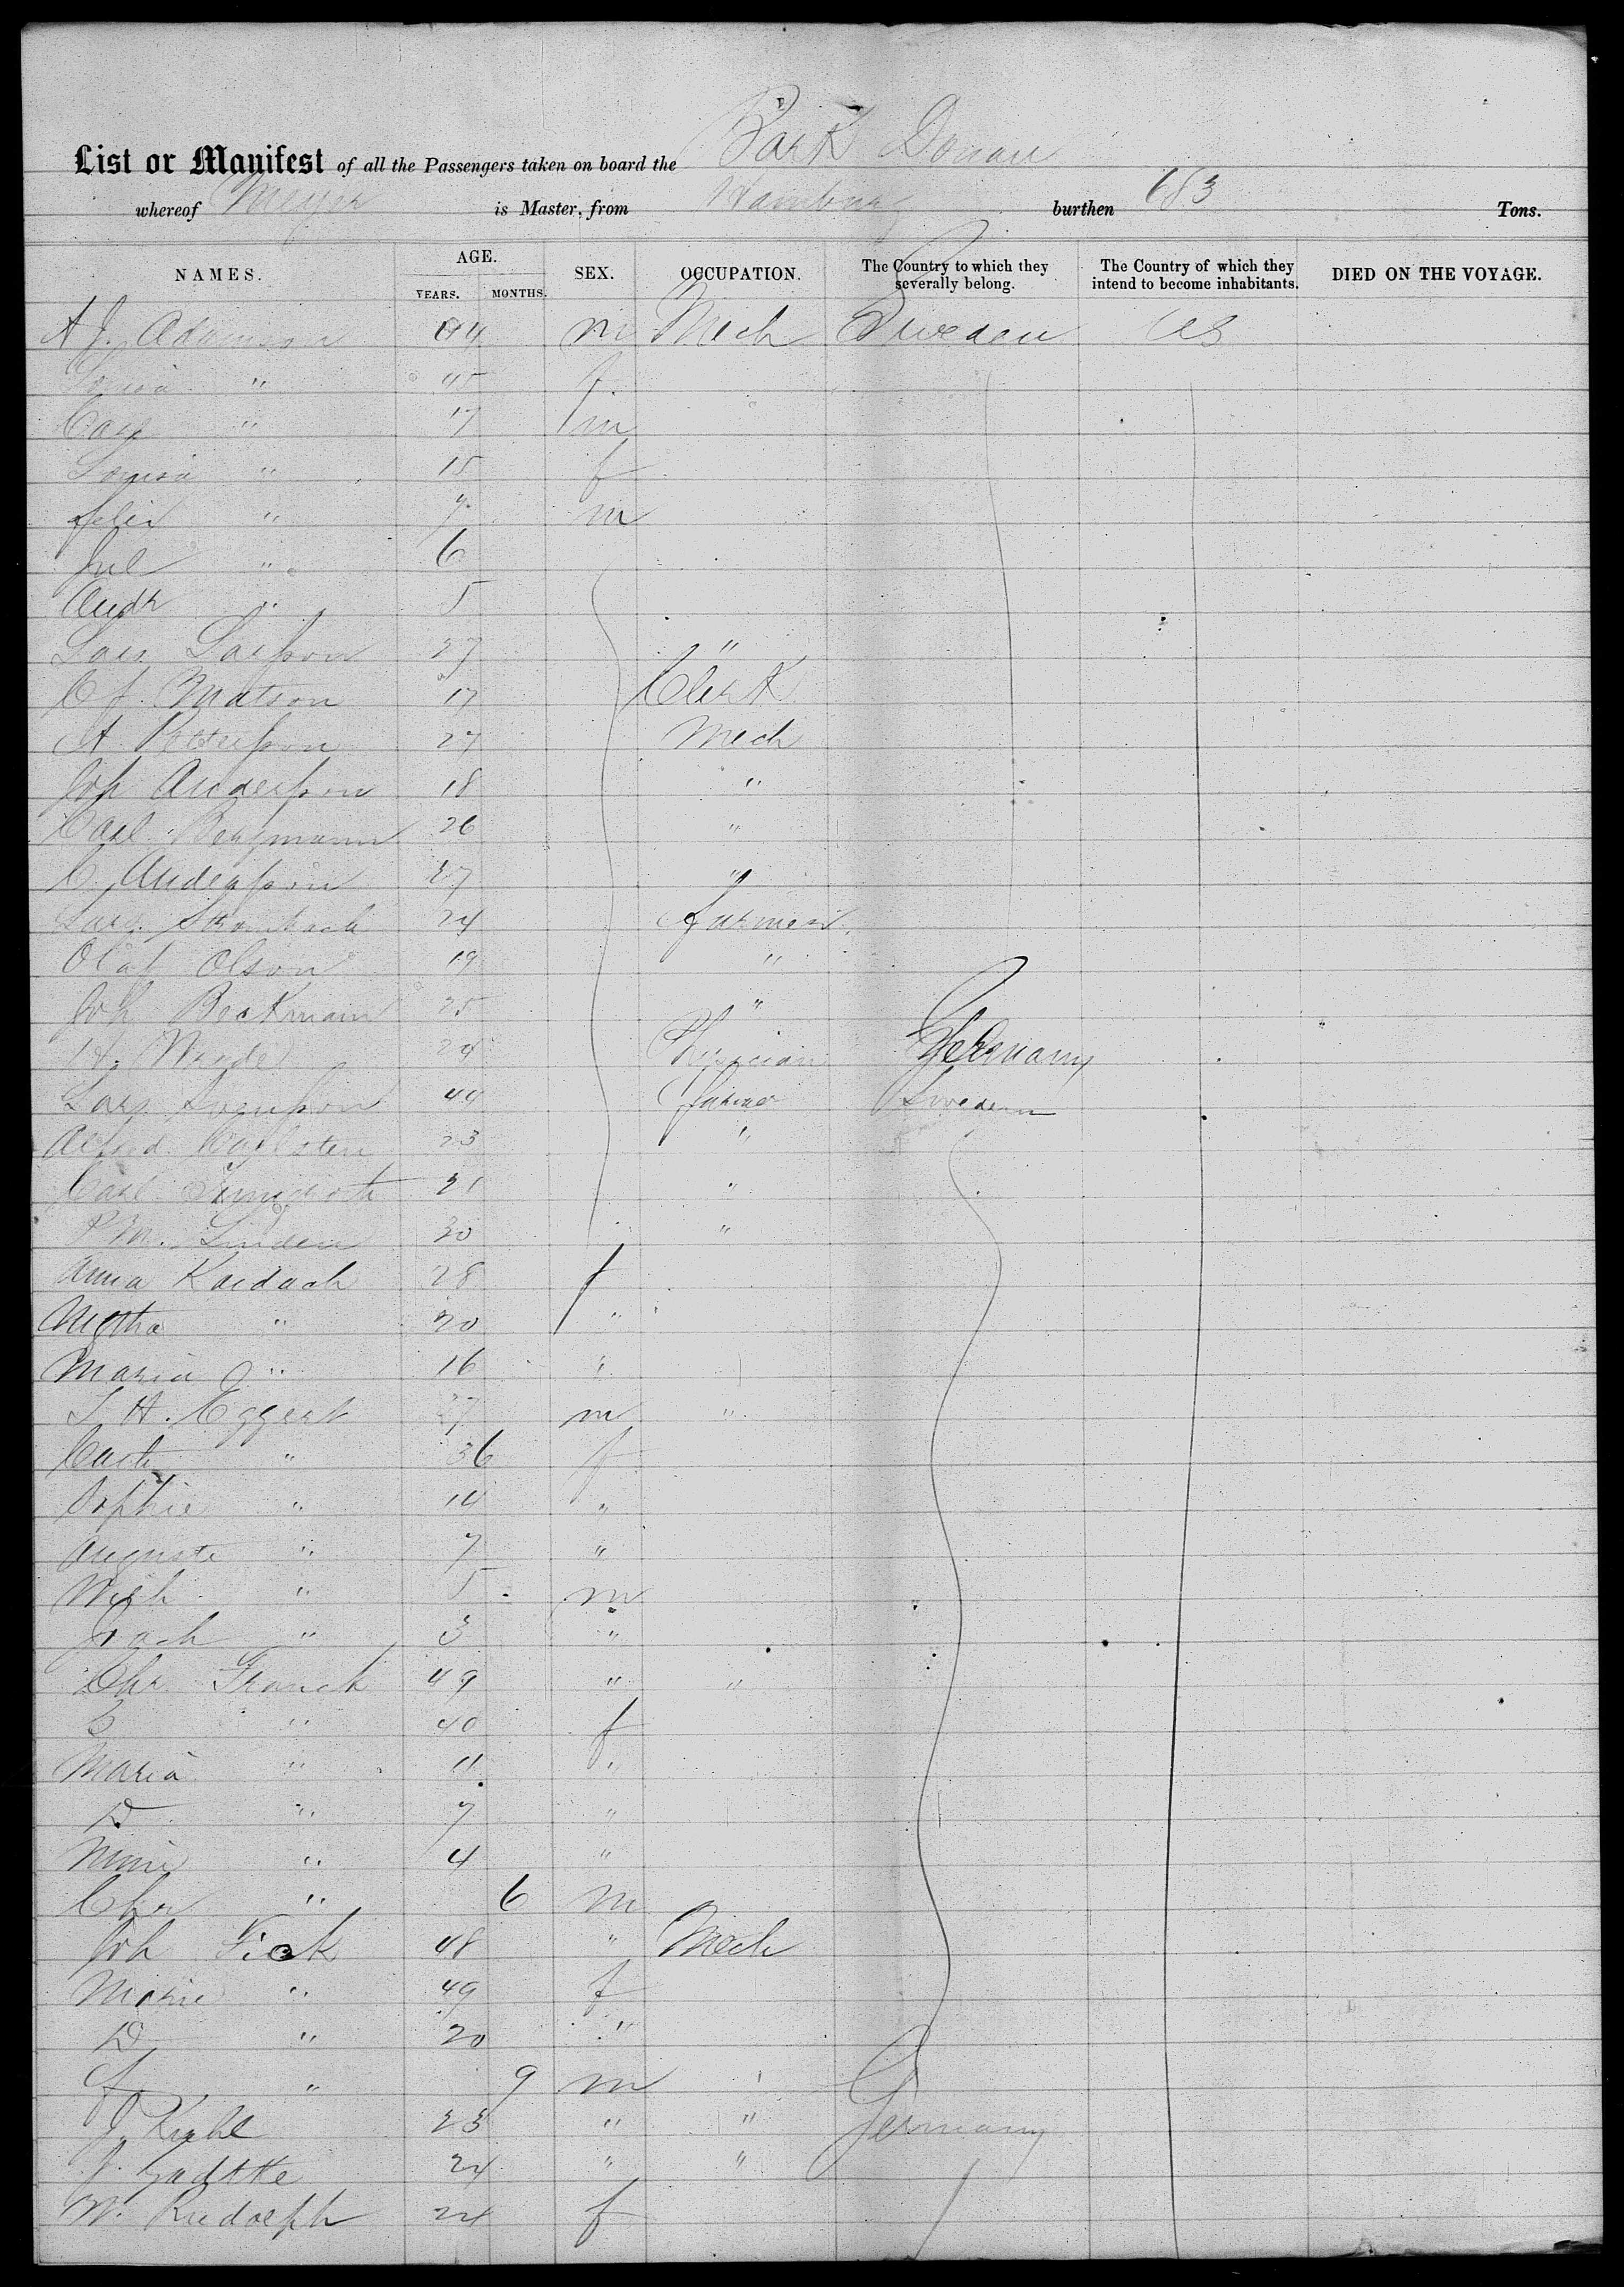 Bark Donau
List or Manifest of all the Passengers taken on board the
whereof Meyer is Master, from Hamburg burthen 683 Tons.
NAMES. AGE. YEARS. MONTHS. SEX. OCCUPATION. The Country to which they severally belong. The Country of which they intend to become inhabitants. DIED ON THE VOYAGE.
A J. Adamson 44 m Mech Sweden US
Louisa " 45 f
Carl " 17 m
Louisa " 15 f
Felix " 7 m
Jul " 6
Andr " 5
Lars Larsson 27 "
C f. Matson 17 Clerk
A. Pettersson 27 Mech
Joh Andersson 18 "
Carl Bergmann 26 "
C. Andersson 27 "
Lars 24 Farmer
Olaf Olson 19 "
Joh Beckmann 25 "
H. 24 Physician Germany
Lars 44 Farmer Sweden
Alfred Carlsten 23 "
Carl 21 "
P M. Linden 30 "
Anna Kardach 28 f
" 20 "
Maria " 16 "
L H. Eggert 37 m "
" 36 f
Sophie " 14 "
Auguste " 7 "
Wilh " 5 m
Joach " 3 "
Chr Franck 49 " "
" 40 f
Maria " 11 "
D " 7 "
Mine " 4 "
Chr " 6 m
Joh Fick 48 " Mech
Marie " 49 f
D " 20 "
f " 9 m "
J. Kuhl 23 " " Germany
J. Gadtke 24 " "
W. Rudolph 24 f